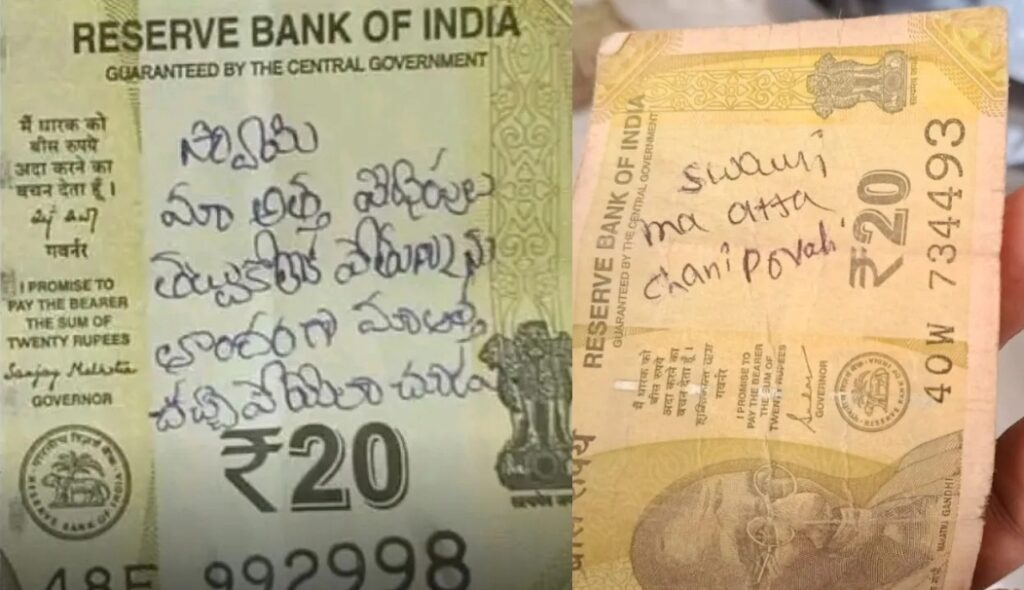 RESERVE BANK OF INDIA
GUARANTEED BY THE CENTRAL GOVERNMENT
मैं धारक को
बीस रुपये
अदा करने का
वचन देता हूँ ।
गवर्नर
I PROMISE TO
PAY THE BEARER
THE SUM OF
TWENTY RUPEES
Sanjay Malhotra
GOVERNOR
స్వామి
మా అత్త వేధింపులు
తట్టుకోలేక పోతున్నాను
తొందరగా మా అత్త
చచ్చిపోయేలా చూడు
₹20
992998
RESERVE BANK OF INDIA
GUARANTEED BY THE CENTRAL GOVERNMENT
swami
ma atta
chanipovali
₹20
40W 734493
मैं धारक को
बीस रुपये
अदा करने का
वचन देता हूँ ।
गवर्नर
I PROMISE TO
PAY THE BEARER
THE SUM OF
TWENTY RUPEES
GOVERNOR
MAHATMA GANDHI